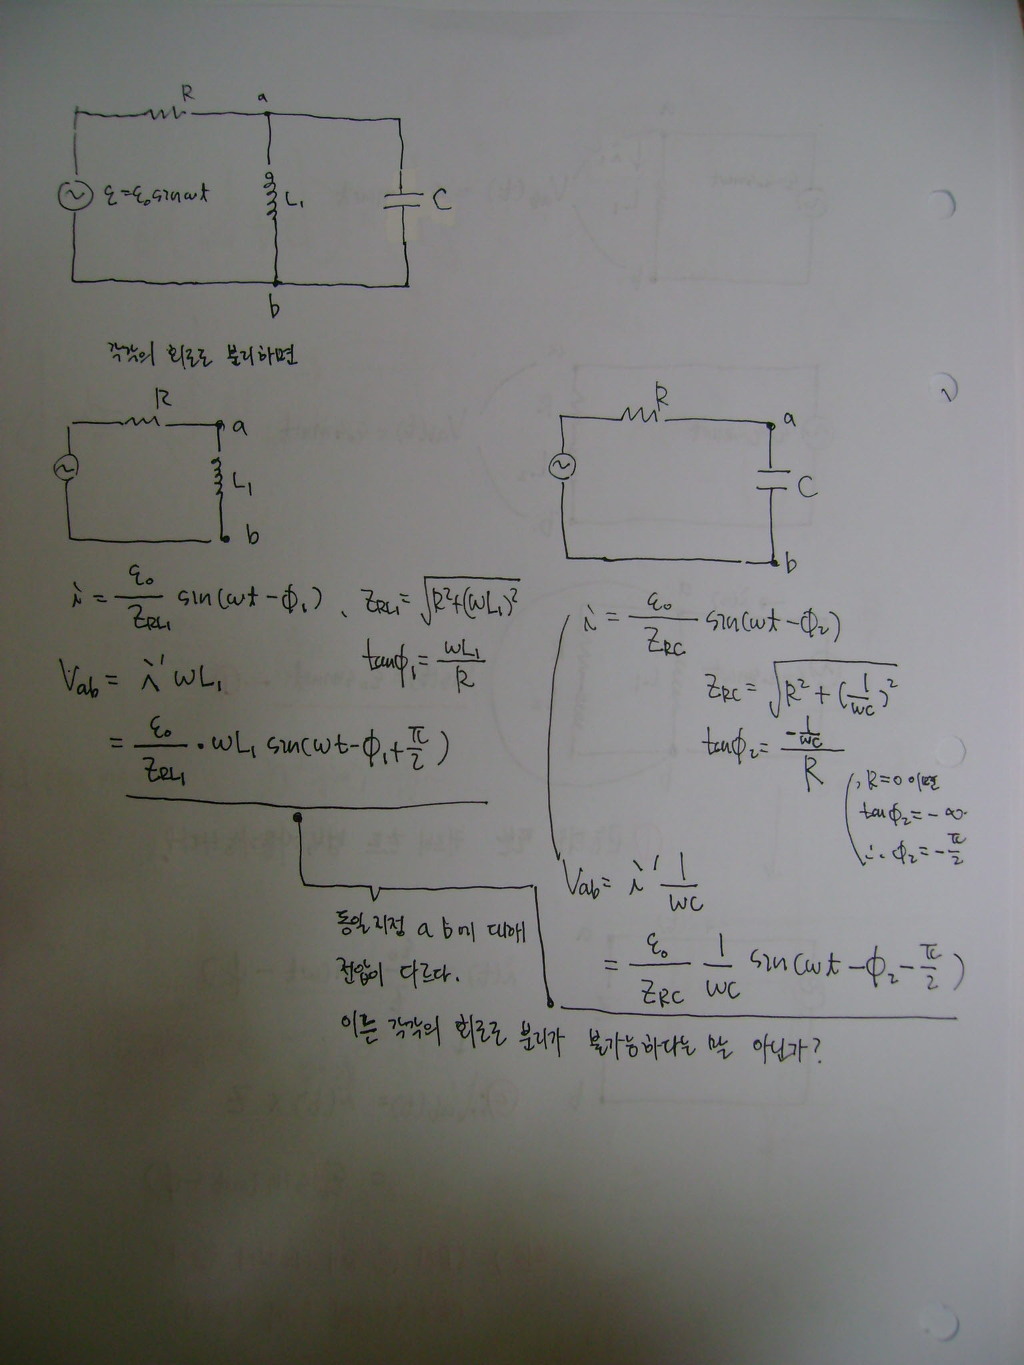 R a
ε=ε₀sinωt L₁ C
b
각각의 회로로 분리하면
R a L₁ b
R a C b
i = ε₀/Z_RL₁ sin(ωt-ϕ₁), Z_RL₁=√(R²+(ωL₁)²)
tanϕ₁=ωL₁/R
V_ab = i' ωL₁
= ε₀/Z_RL₁ · ωL₁ sin(ωt-ϕ₁+π/2)
i = ε₀/Z_RC sin(ωt-ϕ₂)
Z_RC = √(R²+(1/ωC)²)
tanϕ₂ = (-1/ωC)/R
, R=0 이면
tanϕ₂=-∞
∴ ϕ₂=-π/2
V_ab= i' 1/ωC
= ε₀/Z_RC 1/ωC sin(ωt-ϕ₂-π/2)
동일지점 a b에 대해
전압이 다르다.
이는 각각의 회로로 분리가 불가능하다는 말 아닌가?